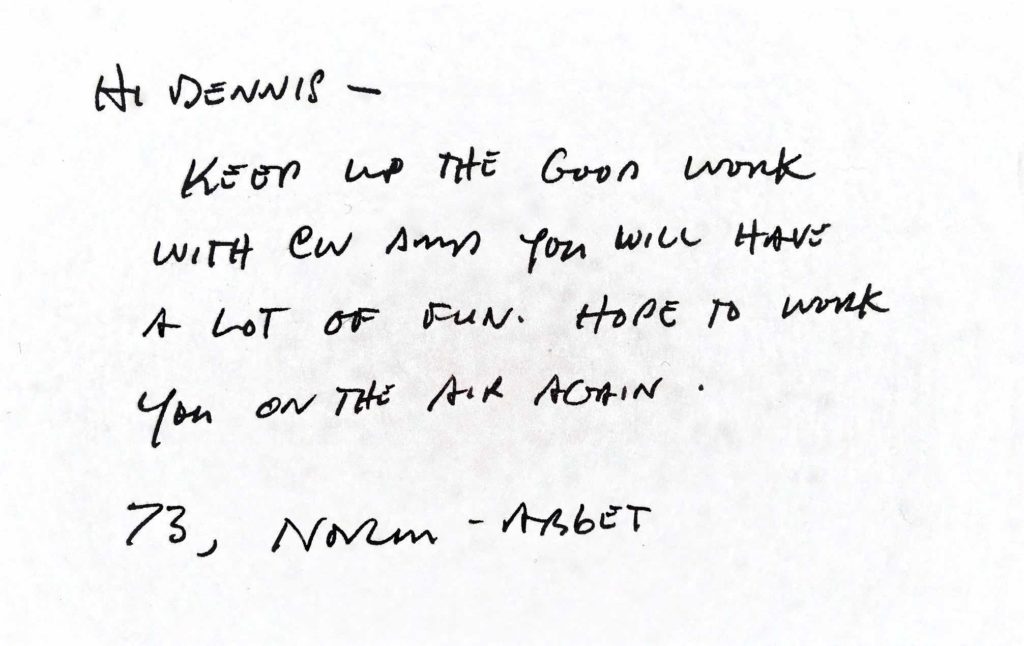 HI DENNIS —
KEEP UP THE GOOD WORK
WITH CW AND YOU WILL HAVE
A LOT OF FUN. HOPE TO WORK
YOU ON THE AIR AGAIN.
73, NORM - AB6ET